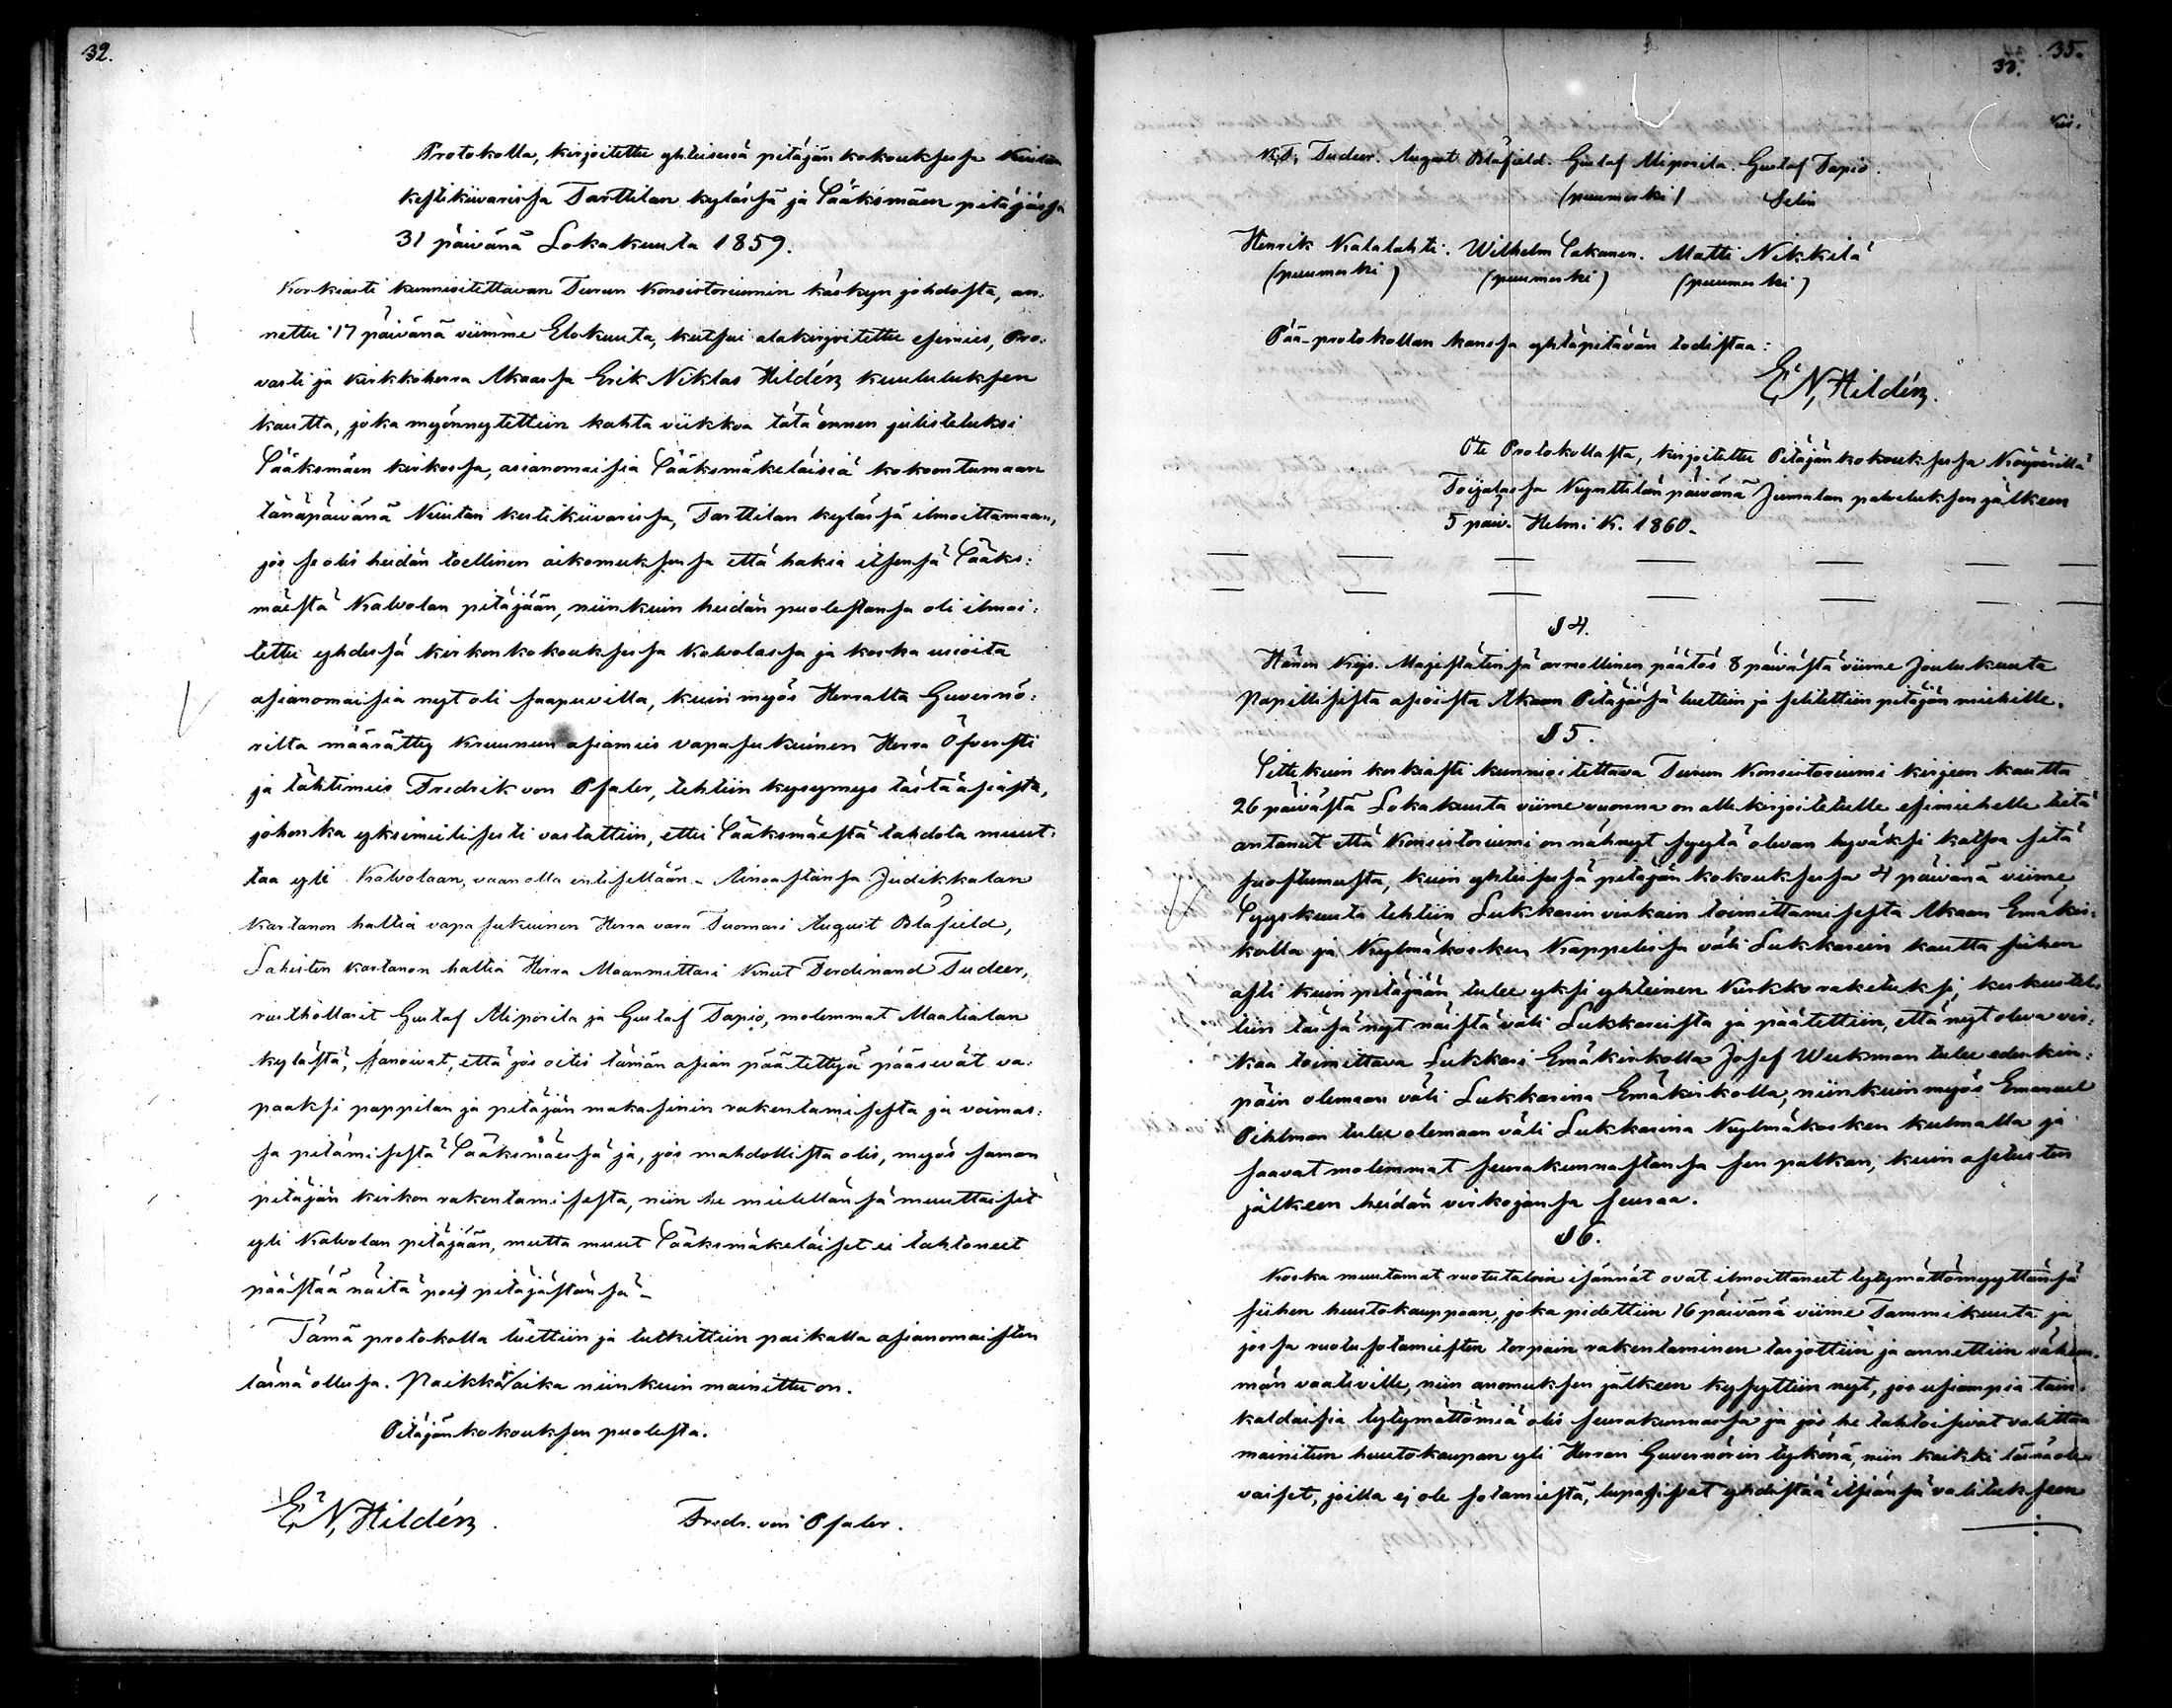 32.
Protokolla, kirjoitettu yhteisesä pitäjän kokouksesa Niutan
kestikiivarissa Tarttilan kylässä ja Sääksmäen pitäjässä
31 päivänä Lokakuuta 1859.
Korkiasti kunnioitettavan Turun Konsistoriumin käskyn johdosta, an:
nettu 17 päivänä viimme Elokuuta, kutsui alakirjoitettu esimies, Pro:
vasti ja kirkkoherra Akaassa Erik Niklas Hildén kuulutuksen
kautta, joka myönnytettiin kahta viikkoa tätä ennen julistetuksi
Sääksmäen kirkossa, asianomaisia Sääksmäkeläisiä kokoontumaan
tänäpäivänä Niutan kestikiivarissa, Tarttilan kylässä ilmoittamaan,
jos se olis heidän toellinen aikomuksensa että hakia itsensä Sääks:
mäestä Kalvolan pitäjään, niinkuin heidän puolestansa oli ilmoi:
tettu yhdessä kirkonkokouksessa Kalvolassa ja koska usioita
asianomaisia nyt oli saapuvilla, kuin myös Herralta Guvernö:
rilta määrätty Kruunun asiamies vapasukuinen Herra Öfversti
ja tähtimies Fredrik von Pfaler, tehtiin kysymys tästä asiasta,
johonka yksimielisesti vastattiin, ettei Sääksmäestä tahdota muut:
taa yli Kalvolaan, vaan olla entisellään. Ainoastansa Judikkalan
Kartanon haltia vapasukuinen Herra vara Tuomari August Blåfield,
Lahisten kartanon haltia Herra Maanmittari Knut Ferdinand Tudeer,
rusthollarit Gustaf Aliporila ja Gustaf Tapio, molemmat Maatialan
kylästä, sanoivat, että jos oitis tämän asian päätettyä pääsevät va:
paaksi pappilan ja pitäjän makasinin rakentamisesta ja voimas:
sa pitämisestä Sääksmäessä ja, jos mahdollista olis, myös saman
pitäjän kirkon rakentamisesta, niin he mielellänsä muuttaisit
yli Kalvolan pitäjään, mutta muut Sääksmäkeläiset ei tahtoneet
päästää näitä pois pitäjästänsä.
Tämä protokolla luettiin ja tutkittiin paikalla asianomaisten
läsnä ollessa. Paikka ja aika niinkuin mainittu on.
Pitäjänkokouksen puolesta.
E. N. Hildén.
Fredr. von Pfaler.
35.
33.
K. F. Tudeer. August Blåfield. Gustaf Aliporila. Gustaf Tapio.
(puumerki) Selin
Henrik Kalalahti. Wilhelm Sakanen. Matti Nikkilä
(puumerki) (puumerki) (puumerki)
Pää-protokollan kanssa yhtäpitävän todistaa:
E. N. Hildén.
Ote Protokollasta, kirjoitettu Pitäjänkokouksessa
Toijalassa Kynttilänpäivänä Jumalan palveluksen jälkeen
5 päiv. Helmi K. 1860.
§ 4.
Hänen Keis. Majestätinsä armollinen päätös 8 päivästä viime Joulukuuta
Papillisista asioista Akaan Pitäjässä luettiin ja selitettiin pitäjän miehille.
§ 5.
Sittekuin korkiasti kunnioitettava Turun Konsistoriumi kirjeen kautta
26 päivästä Lokakuuta viime vuonna on allekirjoitetulle esimiehelle tietä
antanut että Konsistoriumi on nähnyt syytä olevan hyväksi katsoa sitä
suostumusta, kuin yhteisessä pitäjän kokouksessa 4 päivänä viime
Syyskuuta tehtiin Lukkarin virkain toimittamisesta Akaan Emäkir:
kolla ja Kylmäkosken Kappelissa väli Lukkarein kautta siihen
asti kuin pitäjään tulee yksi yhteinen Kirkko raketuksi, keskustel:
tiin tässä nyt näistä väli Lukkareista ja päätettiin, että nyt oleva vir:
kaa toimittava Lukkari Emäkirkolla Josef Weckman tulee edeskin:
päin olemaan väli Lukkarina Emäkirkolla, niinkuin myös Emanuel
Pihlman tulee olemaan väli Lukkarina Kylmäkosken kulmalla ja
saavat molemmat seurakunnastansa sen palkan, kuin asetusten
jälkeen heidän virkojansa seuraa.
§ 6.
Koska muutamat ruotutaloin isännät ovat ilmoittaneet tytymättömyyttänsä
siihen huutokauppaan, joka pidettiin 16 päivänä viime Tammikuuta ja
jossa ruotusotamiesten torpain rakentaminen tarjottiin ja annettiin vähem:
män vaativille, niin anomuksen jälkeen kysyttiin nyt, jos usiampia tain:
kaldaisia tytymättömiä olis seurakunnassa ja jos he tahtoisivat valittaa
mainitun huutokaupan yli Herran Guvernörin tykönä, niin kaikki läsnäole:
vaiset, joilla ej ole sotamiestä, lupasivat yhdistää itsiänsä valitukseen